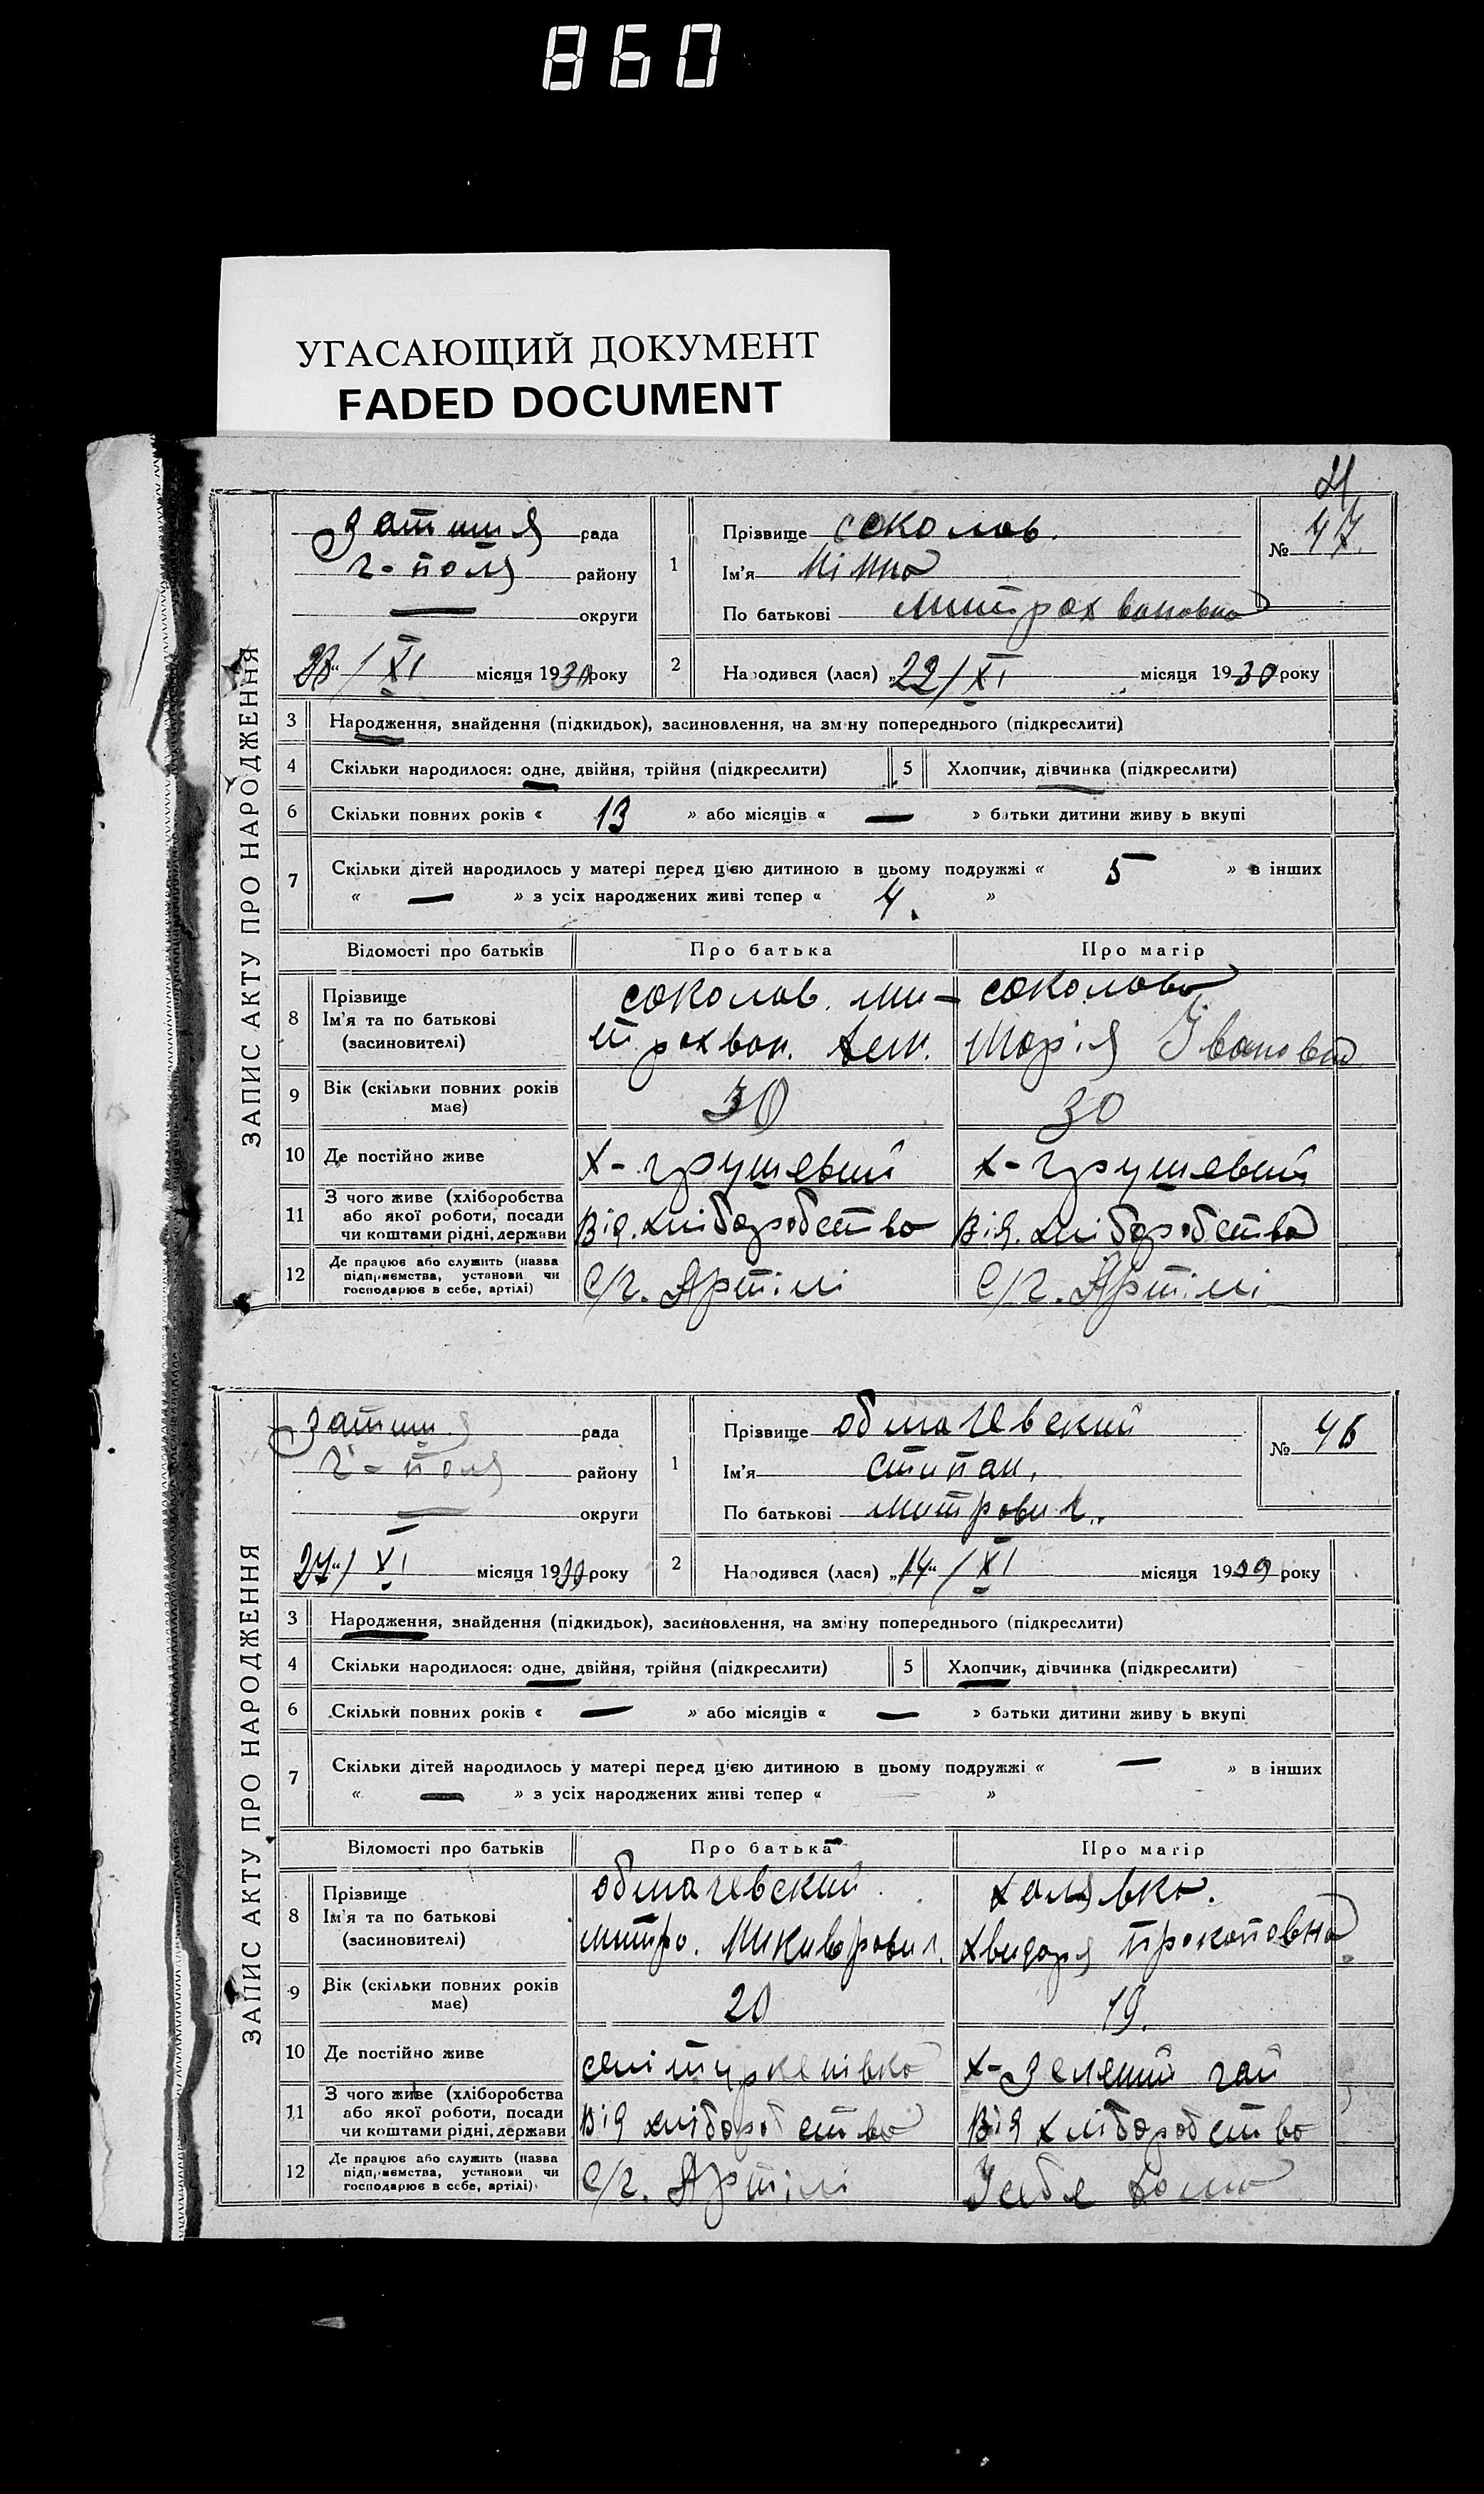 860
УГАСАЮЩИЙ ДОКУМЕНТ
FADED DOCUMENT
ЗАПИС АКТУ ПРО НАРОДЖЕННЯ
затишя рада
г-поля району
— округи
/XI місяця 1930 року
1 Прізвище соколов.
Ім'я
По батькові митрохвановна
№ 47.
2 Народився (лася) „22/XI місяця 1930 року
3 Народження, знайдення (підкидьок), засиновлення, на зміну попереднього (підкреслити)
4 Скільки народилося: одне, двійня, трійня (підкреслити) 5 Хлопчик, дівчинка (підкреслити)
6 Скільки повних років « 13 » або місяців « — » батьки дитини живуть вкупі
7 Скільки дітей народилось у матері перед цією дитиною в цьому подружжі « 5 » в інших
« — » з усіх народжених живі тепер « 4. »
Відомості про батьків Про батька Про матір
8 Прізвище
Ім'я та по батькові
(засиновителі)
соколов. ми-
трохван. Дем.
соколова
Марія Івановна
9 Вік (скільки повних років має) 30 30
10 Де постійно живе х-грушевий х-грушевий
11 З чого живе (хліборобства
або якої роботи, посади
чи коштами рідні, держави
від. хліборобства від. хліборобства
12 Де працює або служить (назва
підприємства, установи чи
господарює в себе, артілі)
С/г. Артілі С/г. Артілі
ЗАПИС АКТУ ПРО НАРОДЖЕННЯ
затишя рада
г-поля району
— округи
24“/XI місяця 1930 року
1 Прізвище обмачевский
Ім'я стипан.
По батькові митрович.
№ 48
2 Народився (лася) „14“/XI місяця 19 року
3 Народження, знайдення (підкидьок), засиновлення, на зміну попереднього (підкреслити)
4 Скільки народилося: одне, двійня, трійня (підкреслити) 5 Хлопчик, дівчинка (підкреслити)
6 Скільки повних років « — » або місяців « — » батьки дитини живуть вкупі
7 Скільки дітей народилось у матері перед цією дитиною в цьому подружжі « — » в інших
« — » з усіх народжених живі тепер « »
Відомості про батьків Про батька Про матір
8 Прізвище
Ім'я та по батькові
(засиновителі)
обмачевский.
митро. Микиворович.
халявка.
хвидоря прокоповна
9 Вік (скільки повних років має) 20 19.
10 Де постійно живе селі туркенівка х-Зелений гай
11 З чого живе (хліборобства
або якої роботи, посади
чи коштами рідні, держави
від хліборобства від хліборобства
12 Де працює або служить (назва
підприємства, установи чи
господарює в себе, артілі)
С/г. Артілі Усебе дома